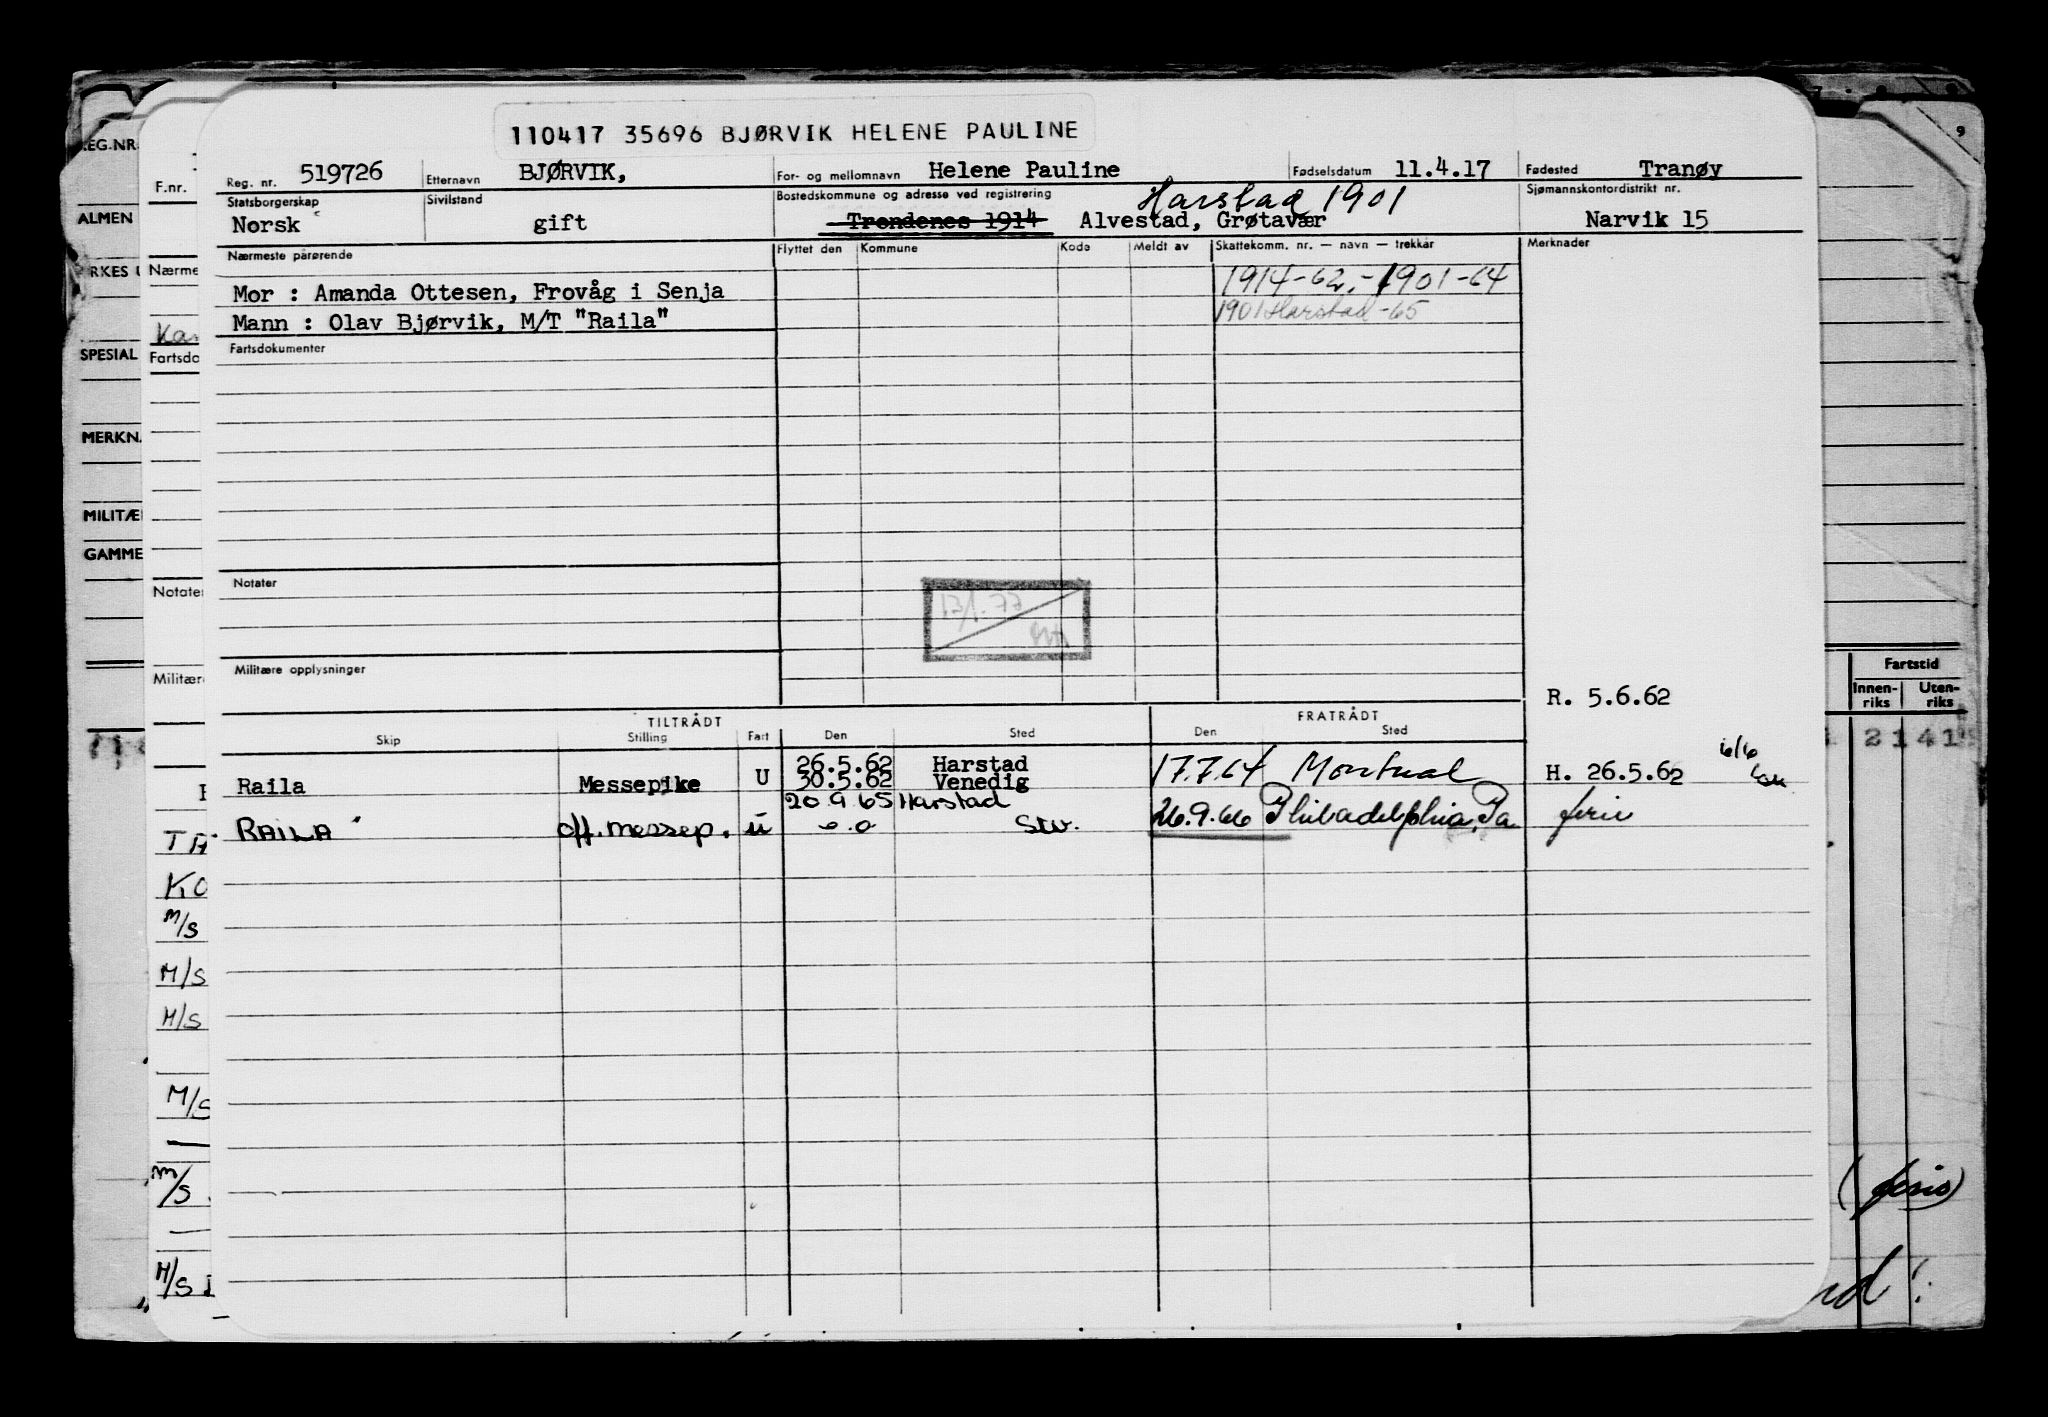 110417 35696 BJØRVIK HELENE PAULINE
Reg. nr. 519726 Etternavn BJØRVIK, For- og mellomnavn Helene Pauline Fødselsdatum 11.4.17 Fødested Tranøy
Statsborgerskap Norsk Sivilstand gift Bostedskommune og adresse ved registrering Harstad 1901
Trondenes 1914 Alvestad, Grøtavær
Sjømannskontordistrikt nr. Narvik 15
Nærmeste pårørende Flyttet den Kommune Kode Meldt av Skattekomm. nr. — navn — trekkår Merknader
1914-62.-1901-64
Mor : Amanda Ottesen, Frovåg i Senja
1901 Harstad -65
Mann : Olav Bjørvik, M/T "Raila"
Fartsdokumenter
Notater
17/1.77
Militære opplysninger
R. 5.6.62
TILTRÅDT FRATRÅDT
Skip Stilling Fart Den Sted Den Sted
26.5.62 Harstad
Raila Messepike U 30.5.62 Venedig 17.7.64 Montreal H. 26.5.62 6/6
20.9.65 Harstad
RAILA off.messep. u Stv. 26.9.66 Philadelphia, Pa ferie
REG.NR.
ALMEN
RKES
SPESIAL
MERKN
MILITÆ
GAMME
F.nr.
Nærme
Kar
Fartsdo
Notater
Militær
KO
M/S
M/S
M/S
M/S
M/S
M/S
9
Fartstid
Innen-riks Uten-riks
2 1 4 1
(ferie)